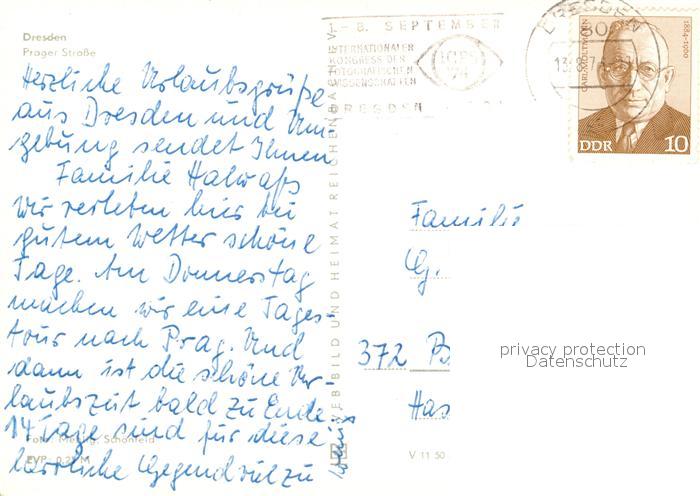 Dresden
Prager Straße
Herzliche Urlaubsgrüße
aus Dresden und Um
gebung sendet Ihnen
Familie
wir verleben hier bei
gutem Wetter schöne
Tage. Am Donnerstag
machen wir eine Tages-
tour nach Prag. Und
dann ist die schöne Ur-
laubszeit bald zu Ende.
14 Tage sind für diese
herrliche Gegend viel zu
wenig
Foto: Schönfeld
EVP:
VEB BILD UND HEIMAT REICHENBACH
8. SEPTEMBER
INTERNATIONALER
KONGRESS DER
FOTOGRAFISCHEN
WISSENSCHAFTEN
DRESDEN
DRESDEN
CARL MOLTMANN
1884-1960
DDR 10
Familie
G.
372
Has
V 11 50
privacy protection
Datenschutz